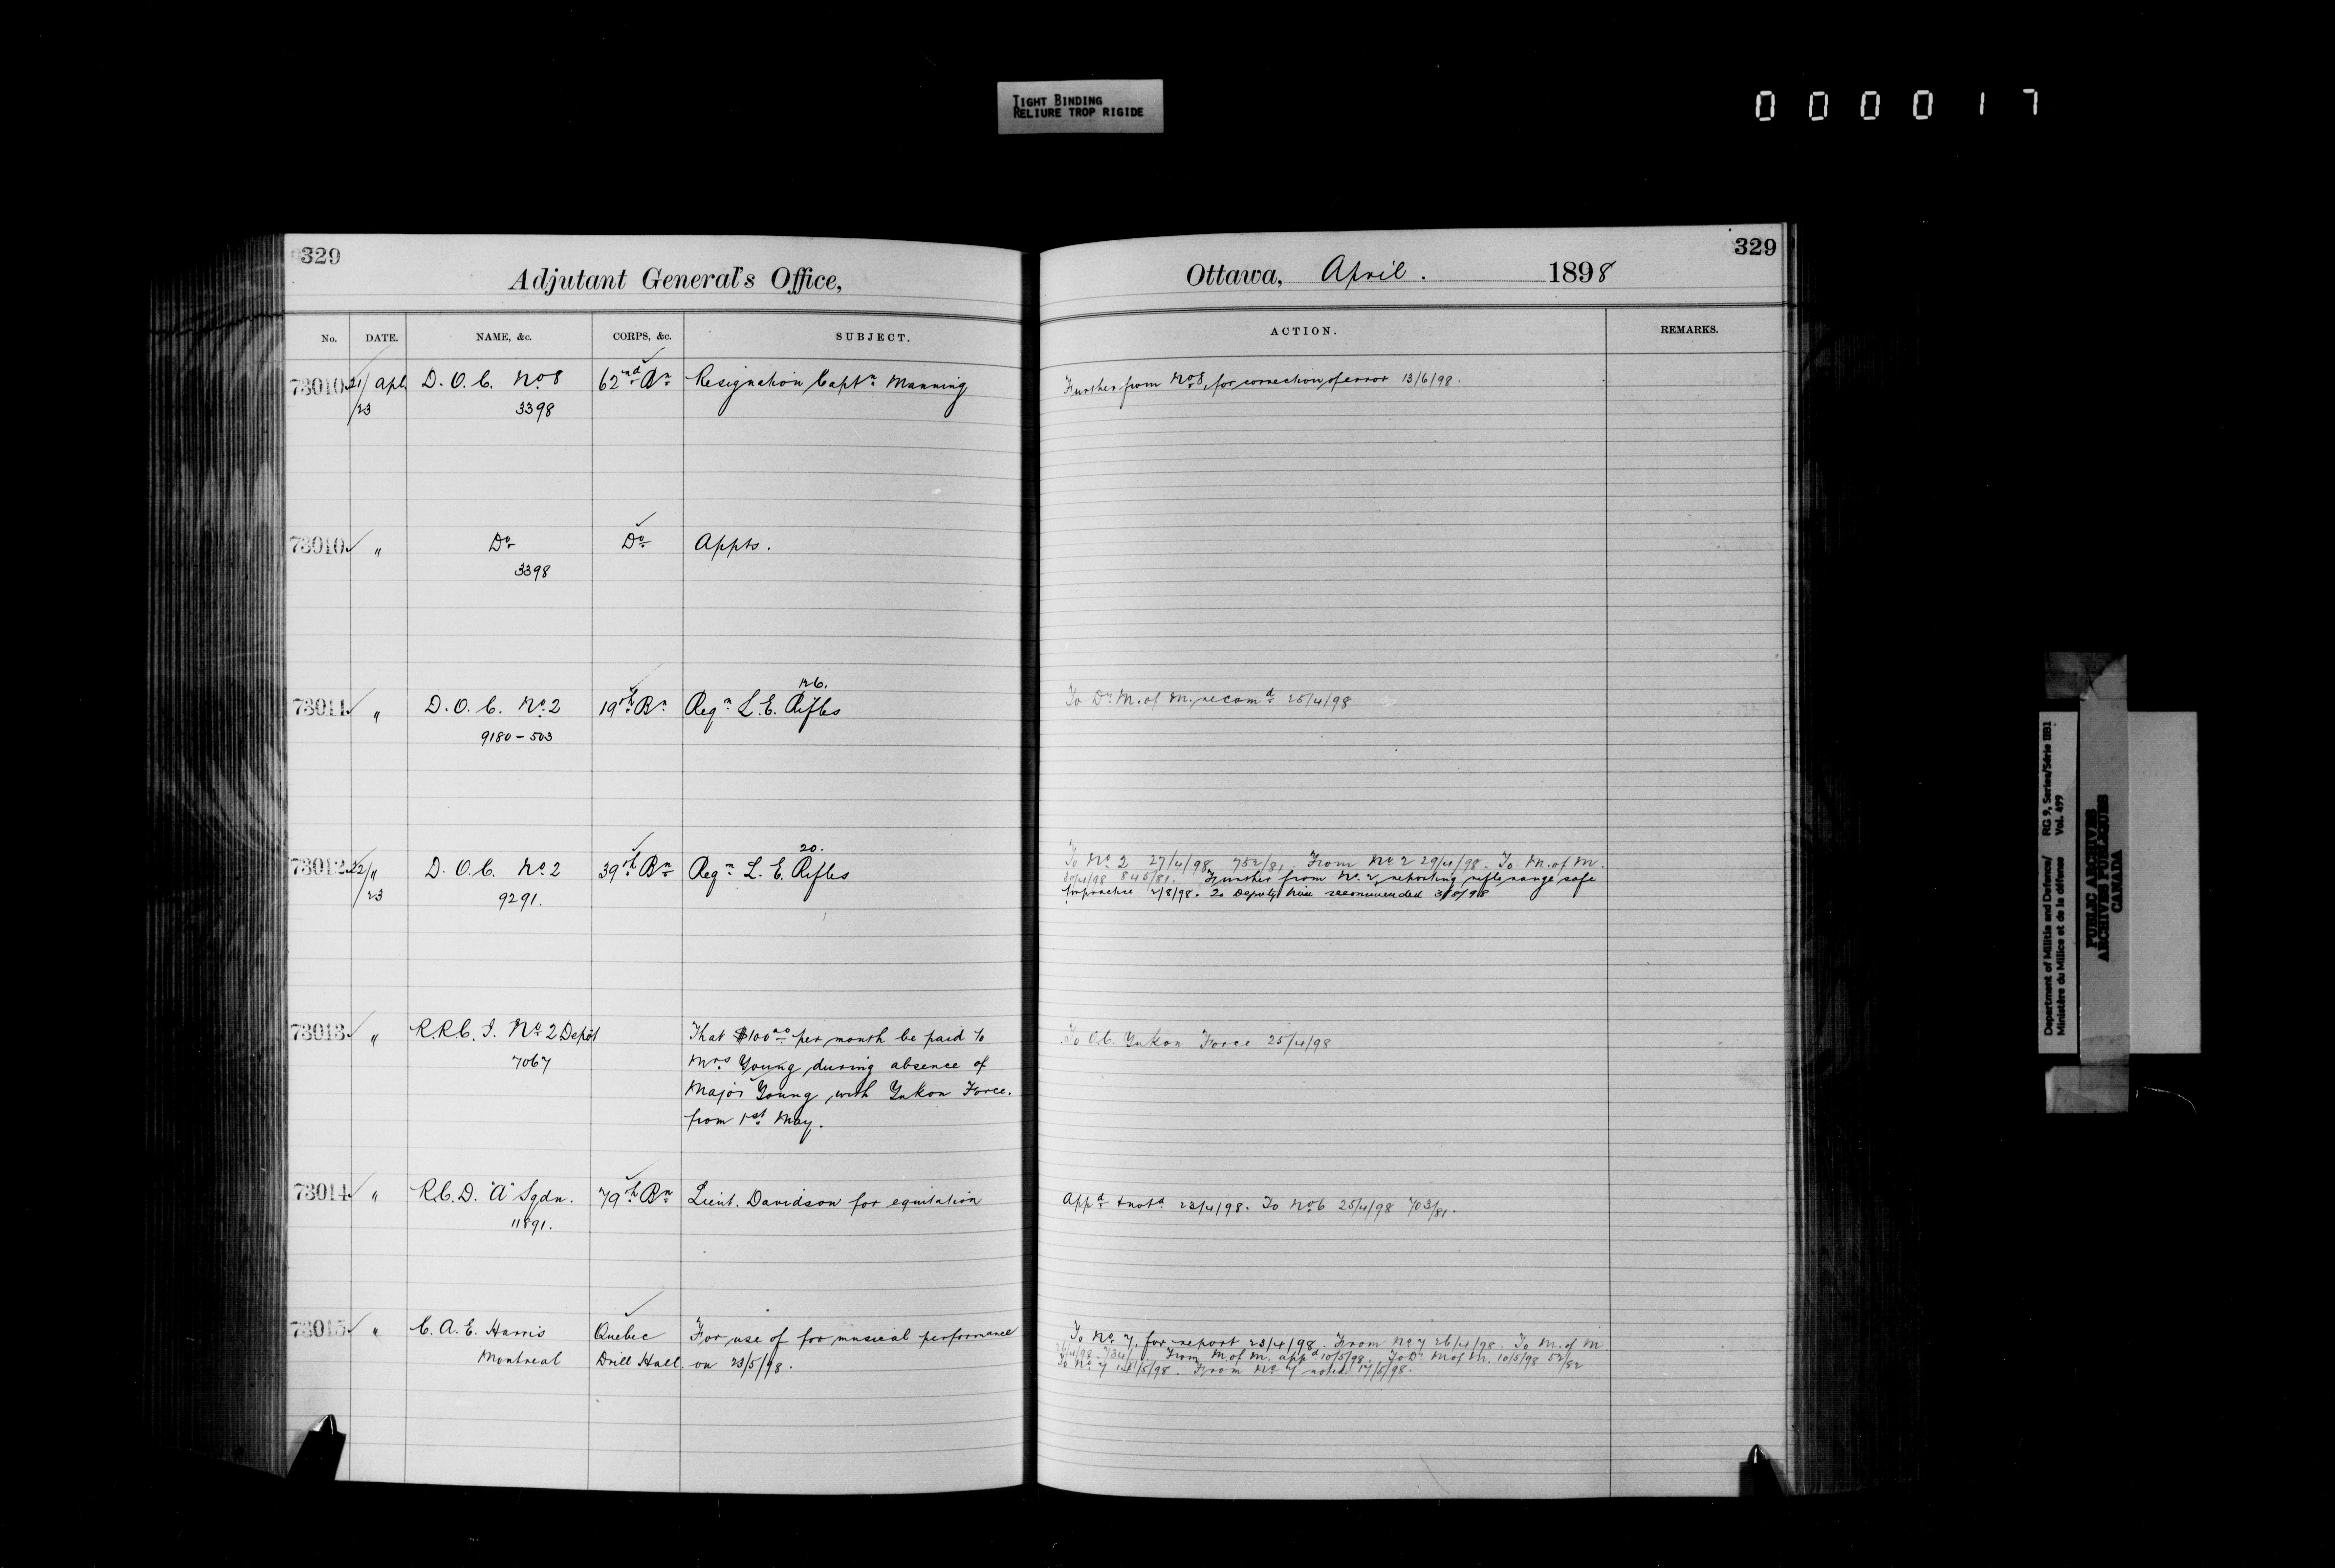 TIGHT BINDING
RELIURE TROP RIGIDE
000017
329
Adjutant General's Office,
No. DATE. NAME, &c. CORPS, &c. SUBJECT.
73010 21/ Apl. D. O. C. No 8 62nd Bn Resignation Captn Manning
/23 3398
73010 " Do Do Appts.
3398
126.
73011 " D. O. C. No 2 19th Bn Reqn L. E. Rifles
9180-503
20.
73012 22/ " D. O. C. No 2 39th Bn Reqn L. E. Rifles
/23 9291.
73013 " R.R.C. I. No 2 Depôt That $100 00 per month be paid to
7067 Mrs Young during absence of
Major Young, with Yukon Force.
from 1st May.
73014 " R.C.D. "A" Sqdn. 79th Bn Lieut. Davidson for equitation
11891.
73015 " C. A. E. Harris Quebec For use of for musical performance
Montreal Drill Hall on 23/5/98.
329
Ottawa, April. 1898
ACTION. REMARKS.
Further from No 8, for correction of error 13/6/98.
To Dy M. of M. recomd 25/4/98
To No 2 27/4/98 752/81. From No 2 29/4/98. To M. of M.
30/4/98 845/81. Further from No 2, reporting rifle range safe
for practice 2/8/98. To Deputy recommended 3/8/98
To O.C. Yukon Force 25/4/98
Appd & notd 23/4/98. To No 6 25/4/98 703/81.
To No 7, for report 23/4/98. From No 7 26/4/98. To M. of M
26/4/98. 734/ From M. of M. appd 10/5/98. To Dy M of M. 10/5/98 52/82
To No 7 /5/98. From No 7 noted 17/5/98.
Department of Militia and Defence/ RG 9, Series/Série IIB1
Ministère du Milice et de la défense Vol. 499
PUBLIC ARCHIVES
ARCHIVES PUBLIQUES
CANADA